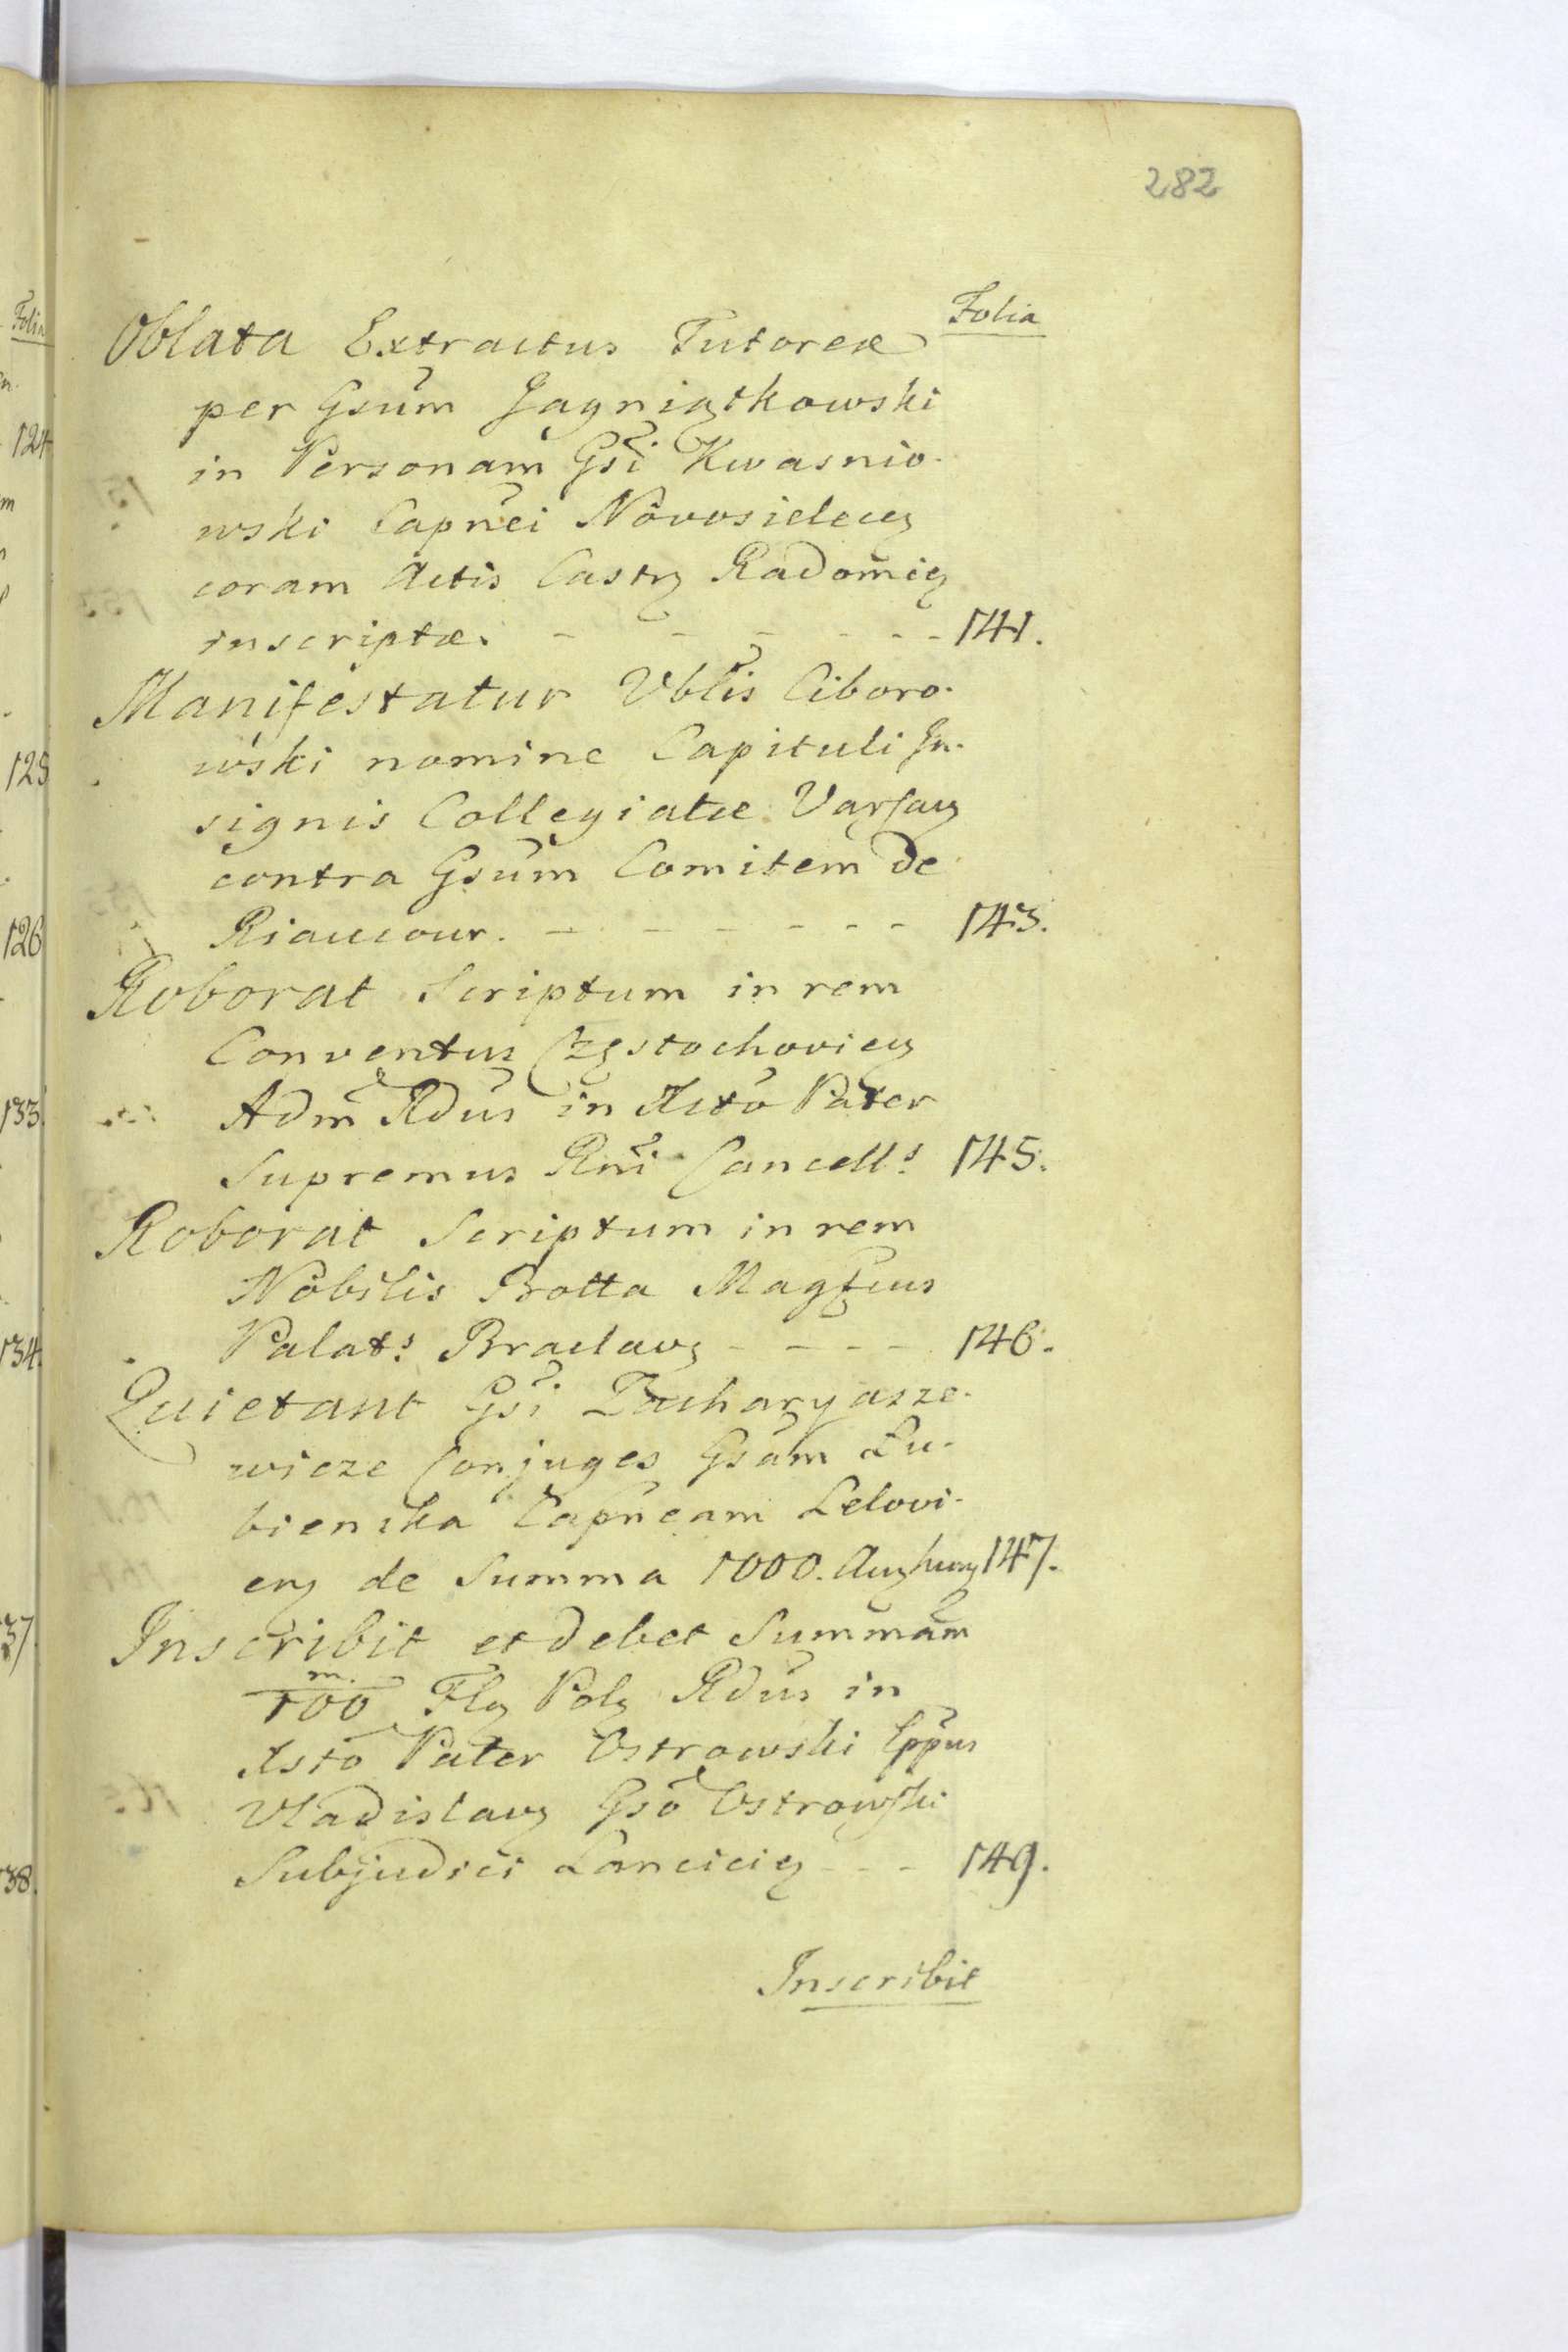 282
Folia
Oblata Extractus Tutoreæ
per Gsum Jagniątkowski
in Personam Gsi Kwasnio-
wski Capnei Novosielecy
coram Actis Castry Radomiey
inscriptæ. - - - - - - 141.
Manifestatur Vblis Ciboro-
wski nomine Capituli In-
signis Collegiatæ Varsavy
contra Gsum Comitem de
Riaucour. - - - - - - 143.
Roborat Scriptum in rem
Conventus Częstochoviey
Adm Rdus in Xsto Pater
Supremus Rni Cancell:s 145.
Roborat Scriptum in rem
Nobilis Botta Magfcus
Palat:s Braclavy - - - - 146.
Quietant Gsi Zacharyasze-
wicze Conjuges Gsam Łu-
bienska Capneam Lelovi-
eny de Summa 1000. Auy hung 147.
Inscribit et debet Summam
m.
100 Fly Poly Rdus in
Xsto Pater Ostrowski Eppus
Vladislavy Gso Ostrowski
Subjudici Lanciciey - - - 149.
Inscribit
Folia
124
125
126
133.
134.
137
138.